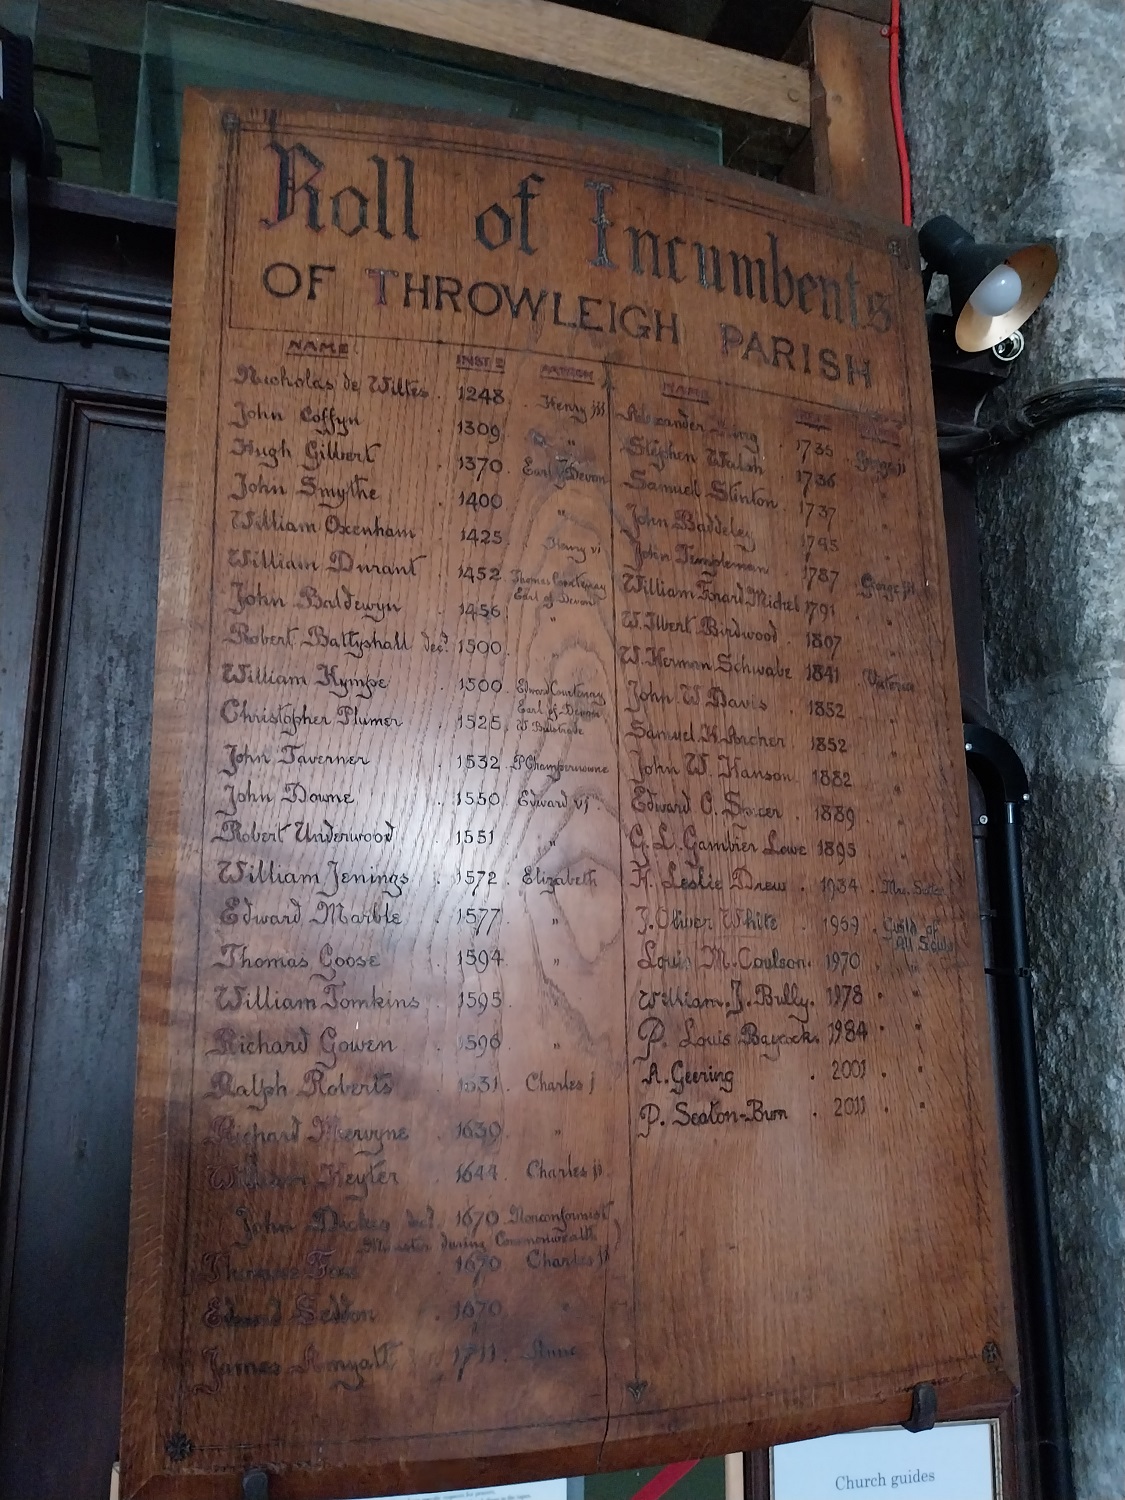 Roll of Incumbents
OF THROWLEIGH PARISH
NAME INSTD PATRON
Nicholas de Wiltes . 1248 . Henry iij
John Coffyn . 1309 . "
Hugh Gilbert . 1370 . Earl of Devon
John Smythe . 1400 "
William Oxenham . 1425 . Henry vi
William Durant . 1452 Thomas Courtenay
Earl of Devon
John Baldewyn . 1456 "
Robert Battyshall decd 1500 "
William Kympe . 1500 Edward Courtenay
Earl of Devon
Christopher Plumer . 1525 W
John Taverner . 1532 P Champernowne
John Downe . 1550 . Edward vj .
Robert Underwood . 1551 "
William Jenings . 1572 . Elizabeth
Edward Marble . 1577 "
Thomas Goose . 1594 "
William Tomkins . 1595 "
Richard Gowen . 1596 "
Ralph Roberts . 1631 . Charles j
Richard Mervyne . 1639 "
William Keyter . 1644 . Charles ij .
John decd. 1670 Nonconformist
Minister during Commonwealth
Thomas . 1670 Charles ij
Edward Seddon . 1670 . "
James Amyatt . 1711 . Anne
NAME
Alexander . 1735 . George ij
Stephen Walsh . 1736 "
Samuel Stinton . 1737 "
John Baddeley "
John Templeman . 1787 . George iij
William Michel 1791 "
W. Ilbert Birdwood . 1807 "
W. Herman Schwabe 1841 . Victoria
John W Davis . 1852 "
Samuel K Archer . 1852 "
John W. Hanson . 1882 "
Edward O. . 1889 "
G. L. Gambier Lowe 1895 "
H. Leslie Drew . 1934 . Mrs.
J. Oliver White . 1959 . Guild of
All Souls
Louis M. Coulson . 1970 "
William. J. Bully. 1978 . "
P. Louis Baycock. 1984 . "
A. Geering . 2001 . "
P. Seaton-Burn . 2011 . "
Church guides